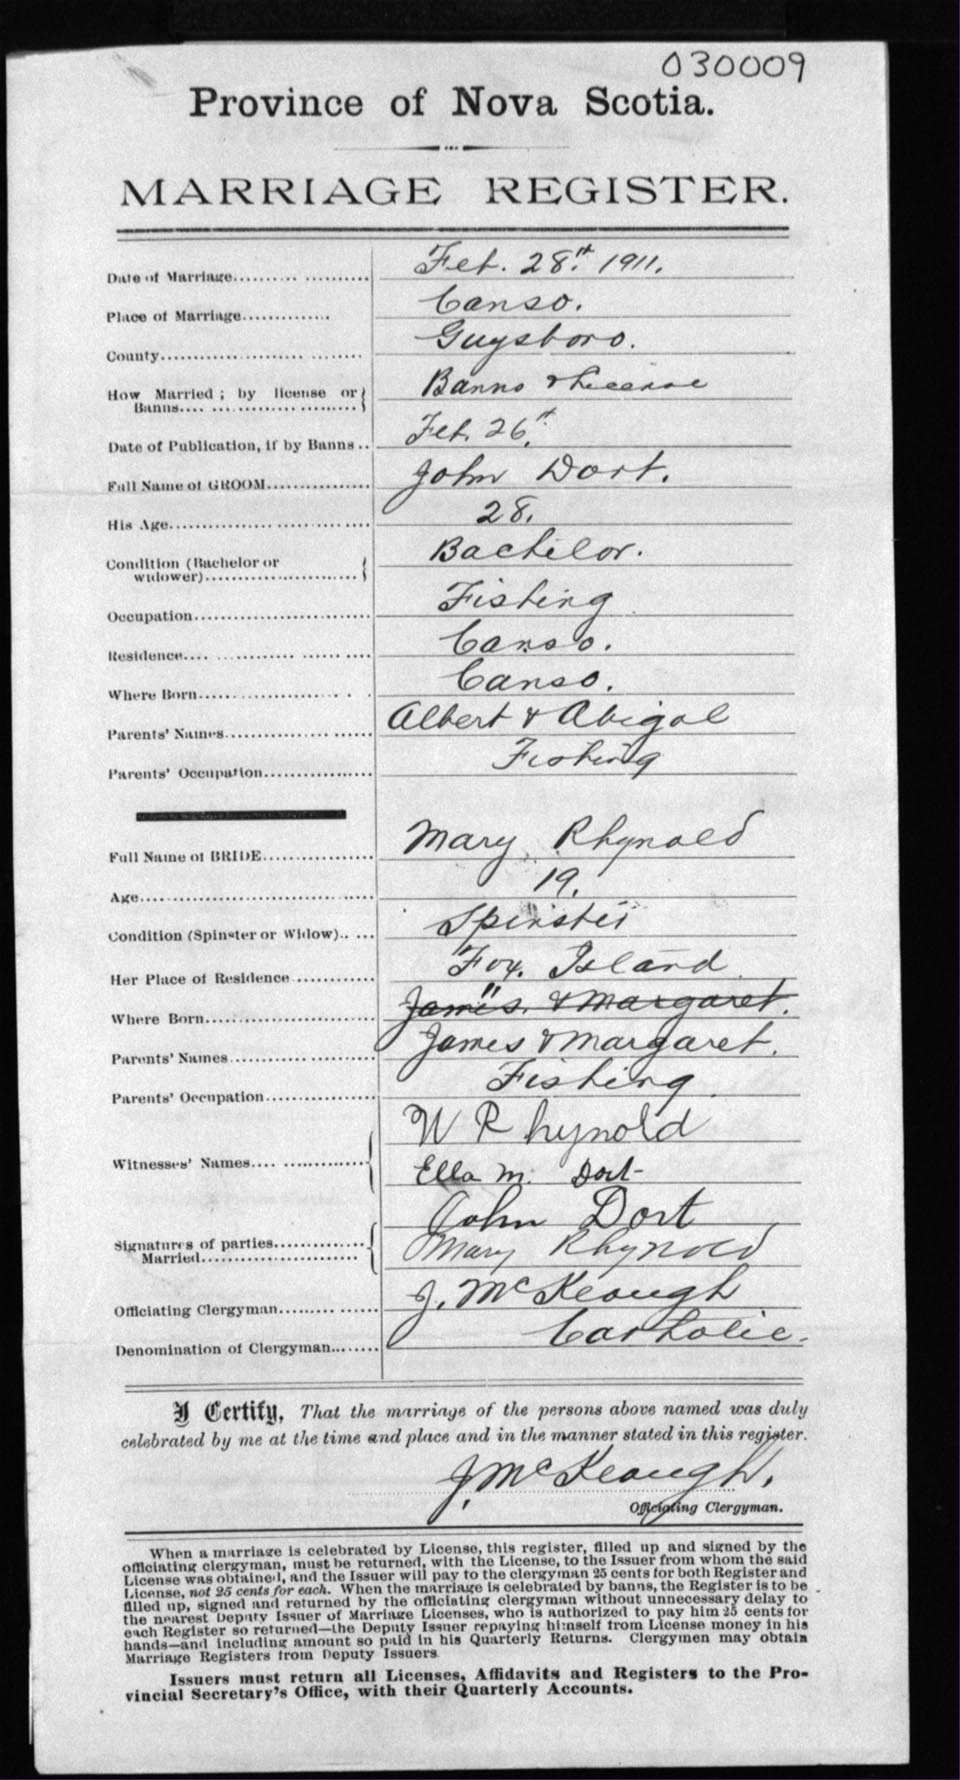 030009
Province of Nova Scotia.
MARRIAGE REGISTER.
Date of Marriage Feb. 28th. 1911.
Place of Marriage Canso.
County Guysboro.
How Married; by license or Banns Banns & License
Date of Publication, if by Banns Feb. 26th.
Full Name of GROOM John Dort.
His Age 28.
Condition (Bachelor or widower) Bachelor.
Occupation Fishing
Residence Canso.
Where Born Canso.
Parents' Names Albert & Abigal
Parents' Occupation Fishing
Full Name of BRIDE Mary Rhynold
Age 19.
Condition (Spinster or Widow) Spinster
Her Place of Residence Fox Island
Where Born " James & Margaret.
Parents' Names James & Margaret.
Parents' Occupation Fishing
Witnesses' Names W Rhynold
Ella M. Dort
Signatures of parties Married John Dort
Mary Rhynold
Officiating Clergyman J. McKeough
Denomination of Clergyman Catholic.
I Certify, That the marriage of the persons above named was duly
celebrated by me at the time and place and in the manner stated in this register.
J. McKeough.
Officiating Clergyman.
When a marriage is celebrated by License, this register, filled up and signed by the
officiating clergyman, must be returned, with the License, to the Issuer from whom the said
License was obtained, and the Issuer will pay to the clergyman 25 cents for both Register and
License, not 25 cents for each. When the marriage is celebrated by banns, the Register is to be
filled up, signed and returned by the officiating clergyman without unnecessary delay to
the nearest Deputy Issuer of Marriage Licenses, who is authorized to pay him 25 cents for
each Register so returned—the Deputy Issuer repaying himself from License money in his
hands—and including amount so paid in his Quarterly Returns. Clergymen may obtain
Marriage Registers from Deputy Issuers
Issuers must return all Licenses, Affidavits and Registers to the Pro-
vincial Secretary's Office, with their Quarterly Accounts.